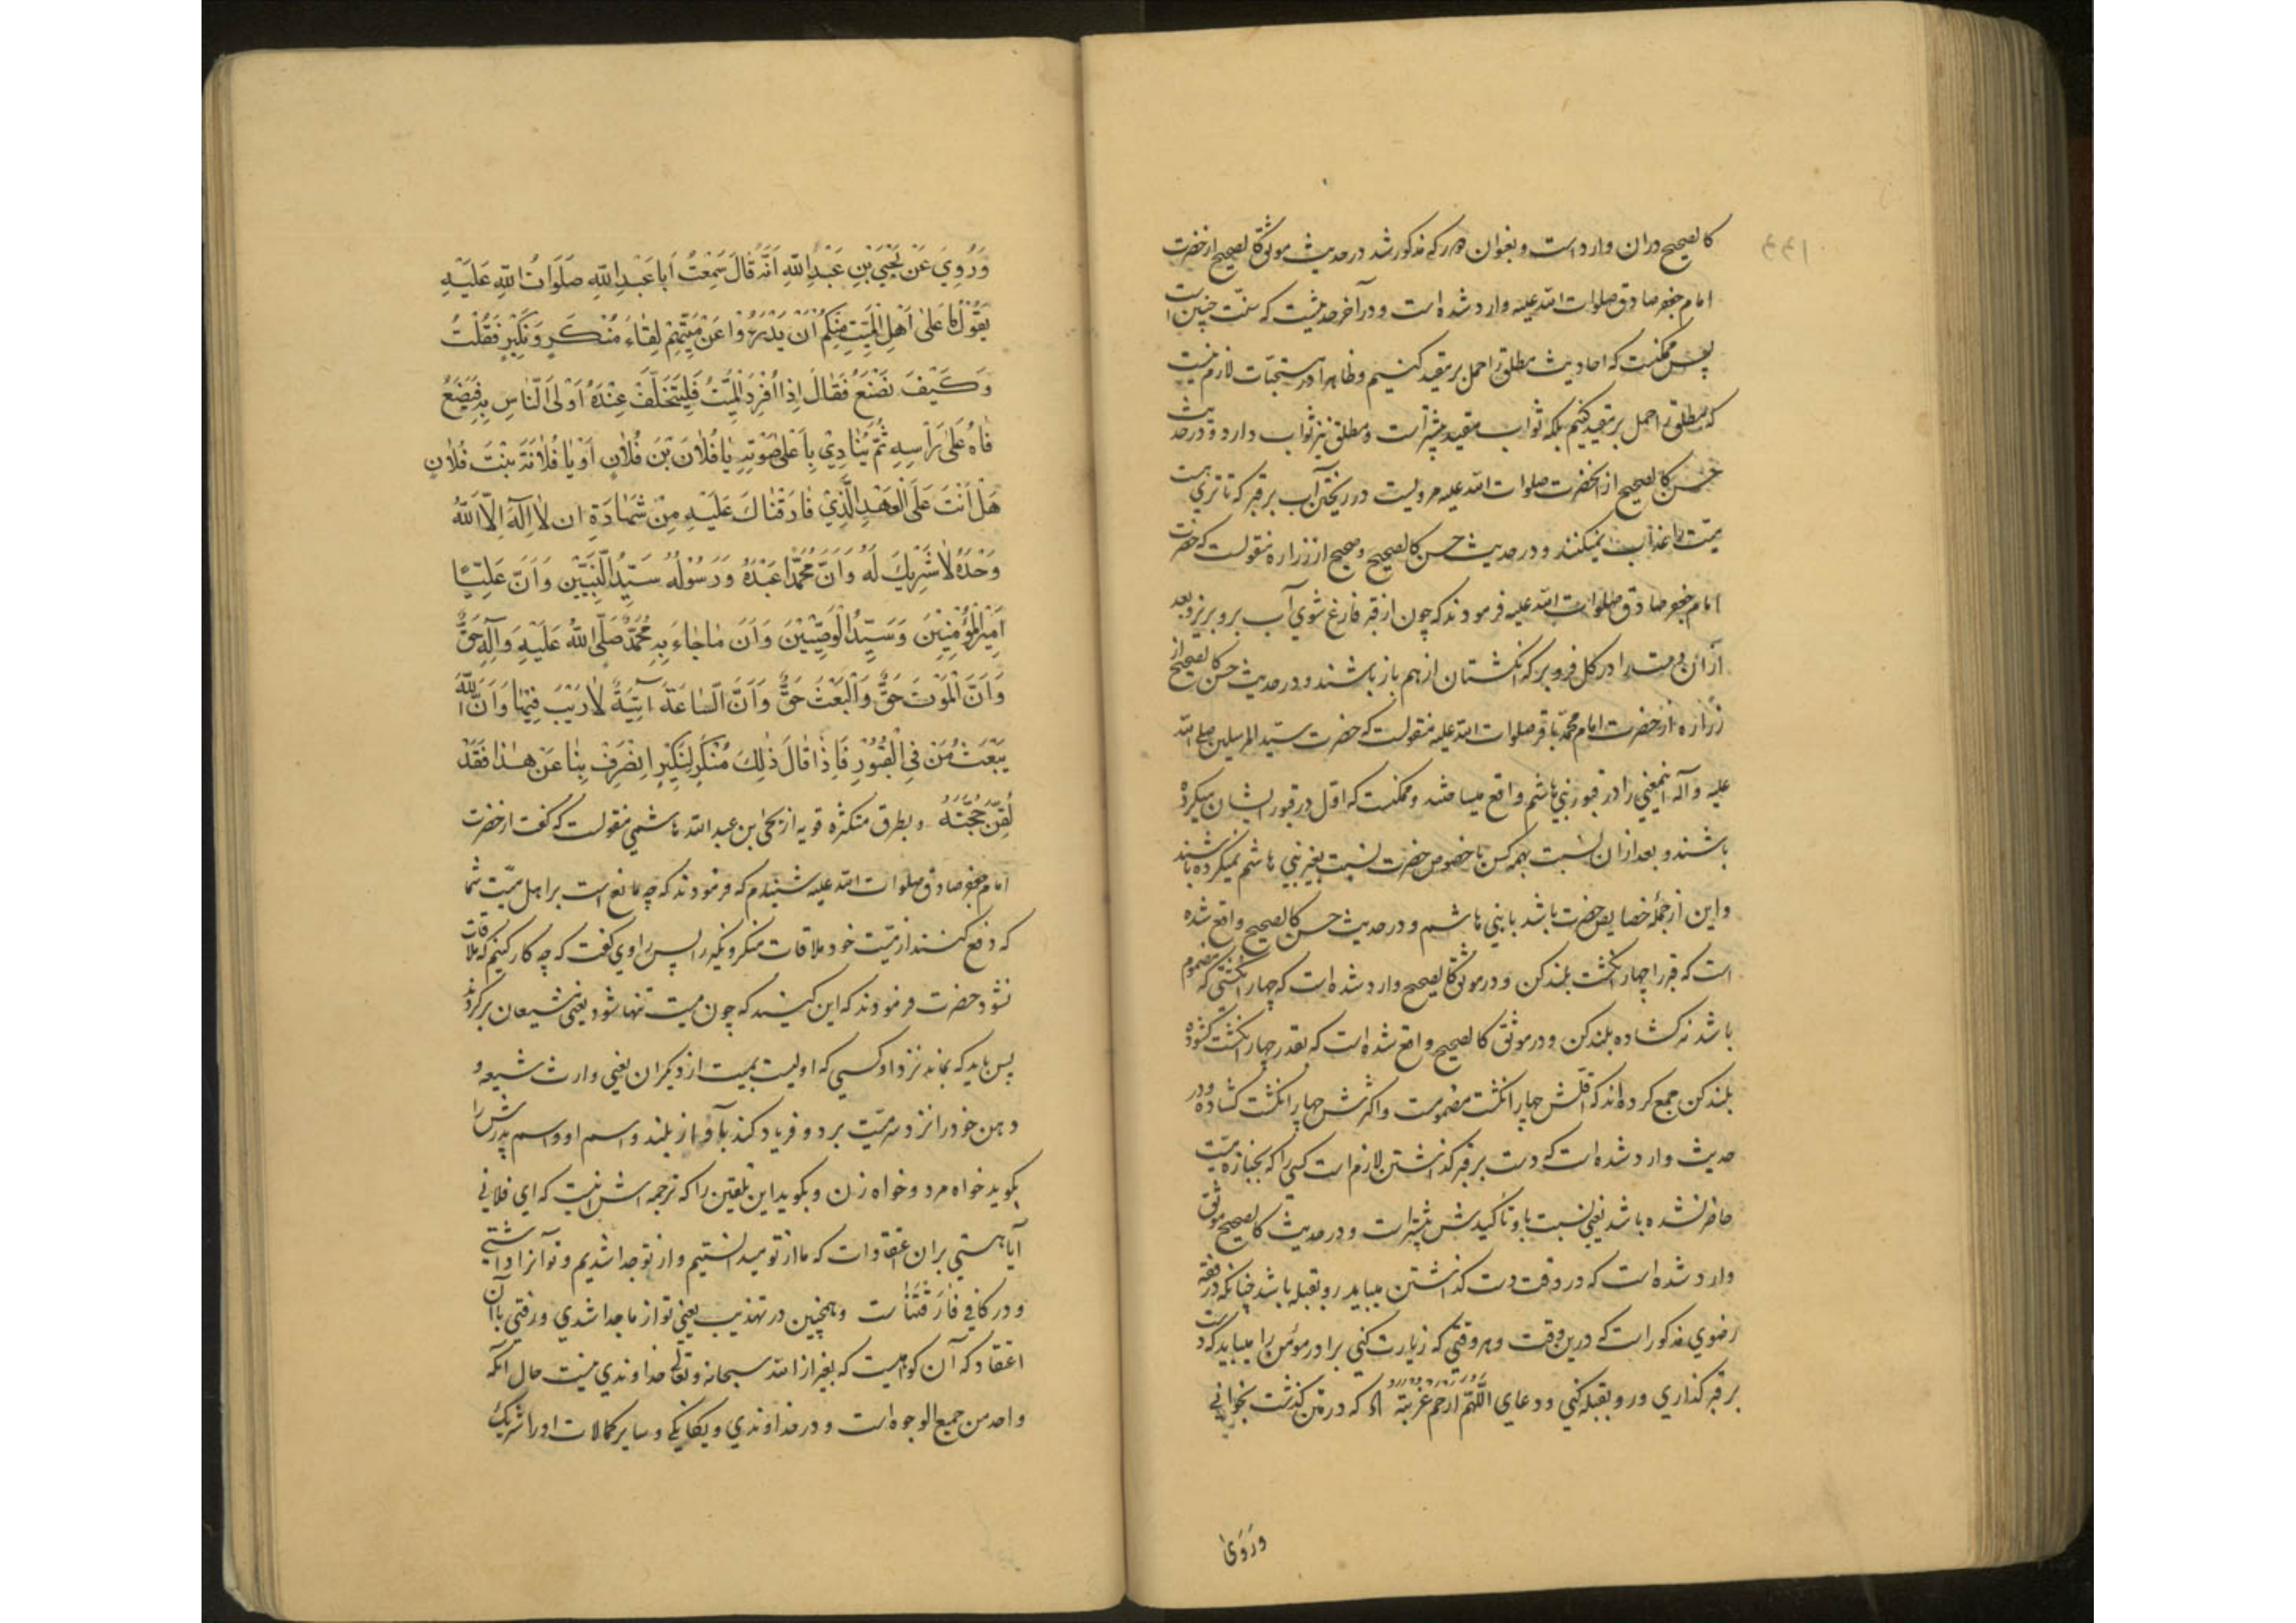 كالصحيح دران وارد است و بعنوان هر كه مذكور شد در حديث موثق كالصحيح از حضرت
امام جعفر صادق صلوات الله عليه وارد شده است و در آخر حديثست كه سنت چنين است
پس ممكنست كه احاديث مطلق را حمل بر مقيد كنيم و ظاهرا در مستحبات لازم نيست
كه مطلق را حمل بر مقيد كنيم بلكه ثواب مقيد بيشتر است و مطلق نيز ثواب دارد و در حديث
حسن كالصحيح از آنحضرت صلوات الله عليه مرويست در ريختن آب بر قبر كه تا تري هست
ميت را عذاب نميكنند و در حديث حسن كالصحيح و صحيح از زراره منقولست كه حضرت
امام جعفر صادق صلوات الله عليه فرمودند كه چون از قبر فارغ شوي آب برو بريز و بعد
ازان دست را در كل فرو بر كه انكشتان از هم باز باشند و در حديث حسن كالصحيح از
زراره از حضرت امام محمد باقر صلوات الله عليه منقولست كه حضرت سيد المرسلين صلى الله
عليه و آله اينمعني را در قبور بني هاشم واقع ميساختند و ممكنست كه اول در قبور ايشان ميكرده
باشند و بعد ازان نسبت بهمه كس يا خصوص حضرت نسبت بغير بني هاشم نميكرده باشند
و اين از جمله خصايص حضرت باشد با بني هاشم و در حديث حسن كالصحيح واقع شده
است كه قبر را چهار انكشت بلند كن و در موثق كالصحيح وارد شده است كه چهار انكشتي كه مضموم
باشد نه كشاده بلند كن و در موثق كالصحيح واقع شده است كه بقدر چهار انكشت كشوده
بلند كن جمع كرده اند كه اقلش چهار انكشت مضمومست و اكثرش چهار انكشت كشاده و در
حديث وارد شده است كه دست بر قبر كذاشتن لازم است كسي را كه بجنازه ميت
حاضر نشده باشد يعني نسبت باو تأكيدش بيشتر است و در حديث كالصحيح موثق
وارد شده است كه در وقت دست كذاشتن ميبايد رو بقبله باشد چنانكه در فقه
رضوي مذكور است كه درين وقت و هر وقتي كه زيارت كني برادر مؤمن را ميبايد كه دست
بر قبر كذاري و رو بقبله كني و دعاي اللهم ارحم غربته اه كه در متن كذشت بخواني
وَرَوَىٰ
وَرُوِيَ عَنْ يَحْيَى بْنِ عَبْدِ اللهِ اَنَّهُ قَالَ سَمِعْتُ اَبَا عَبْدِ اللهِ صَلَوَاتُ اللهِ عَلَيْهِ
يَقُوْلُ مَا عَلىٰ اَهْلِ الْمَيِّتِ مِنْكُمْ اَنْ يَدْرَؤُوْا عَنْ مَيِّتِهِمْ لِقَاءَ مُنْكَرٍ وَنَكِيْرٍ فَقُلْتُ
وَكَيْفَ نَصْنَعُ فَقَالَ اِذَا اُفْرِدَ الْمَيِّتُ فَلْيَتَخَلَّفْ عِنْدَهُ اَوْلَى النَّاسِ بِهِ فَيَضَعُ
فَاهُ عَلىٰ رَأْسِهِ ثُمَّ يُنَادِيْ بِاَعْلىٰ صَوْتِهِ يَا فُلَانَ بْنَ فُلَانٍ اَوْ يَا فُلَانَةَ بِنْتَ فُلَانٍ
هَلْ اَنْتَ عَلَى الْعَهْدِ الَّذِيْ فَارَقْنَاكَ عَلَيْهِ مِنْ شَهَادَةِ ان لَا اِلٰهَ اِلَّا اللهُ
وَحْدَهُ لَا شَرِيْكَ لَهُ وَاَنَّ مُحَمَّدًا عَبْدُهُ وَرَسُوْلُهُ سَيِّدُ النَّبِيِّيْنَ وَاَنَّ عَلِيًّا
اَمِيْرُ الْمُؤْمِنِيْنَ وَسَيِّدُ الْوَصِيِّيْنَ وَاَنَّ مَا جَاءَ بِهِ مُحَمَّدٌ صَلَّى اللهُ عَلَيْهِ وَآلِهِ حَقٌّ
وَاَنَّ الْمَوْتَ حَقٌّ وَالْبَعْثَ حَقٌّ وَاَنَّ السَّاعَةَ آتِيَةٌ لَا رَيْبَ فِيْهَا وَاَنَّ اللهَ
يَبْعَثُ مَنْ فِي الْقُبُوْرِ فَاِذَا قَالَ ذٰلِكَ مُنْكَرٌ لِنَكِيْرٍ اِنْصَرِفْ بِنَا عَنْ هٰذَا فَقَدْ
لُقِّنَ حُجَّتَهُ و بطرق متكثره قويه از يحيى ابن عبد الله هاشمي منقولست كه كفت از حضرت
امام جعفر صادق صلوات الله عليه شنيدم كه فرمودند كه چه مانع است بر اهل ميت شما
كه دفع كنند از ميت خود ملاقات منكر و نكير را پس راوي كفت كه چه كار كنيم كه ملاقات
نشود حضرت فرمودند كه اين كنيد كه چون ميت تنها شود يعني شيعان بركردند
پس بايد كه بماند نزد او كسي كه اوليست بميت از ديكران يعني وارث شيعه و
دهن خود را نزد سر ميت برد و فرياد كند بآواز بلند و اسم او و اسم پدرش را
بكويد خواه مرد و خواه زن و بكويد اين تلقين را كه ترجمه اش اينست كه اي فلاني
آيا هستي بران اعتقادات كه ما از تو ميدانستيم و از تو جدا شديم و تو آنرا داشتي
و در كافي فَارَقْتَنَا ست و همچنين در تهذيب يعني تو از ما جدا شدي و رفتي با آن
اعتقاد كه آن كواهيست كه بغير از الله سبحانه و تعالى خداوندي نيست حال آنكه
واحد من جميع الوجوه است و در خداوندي و يكانكي و ساير كمالات او را شريك